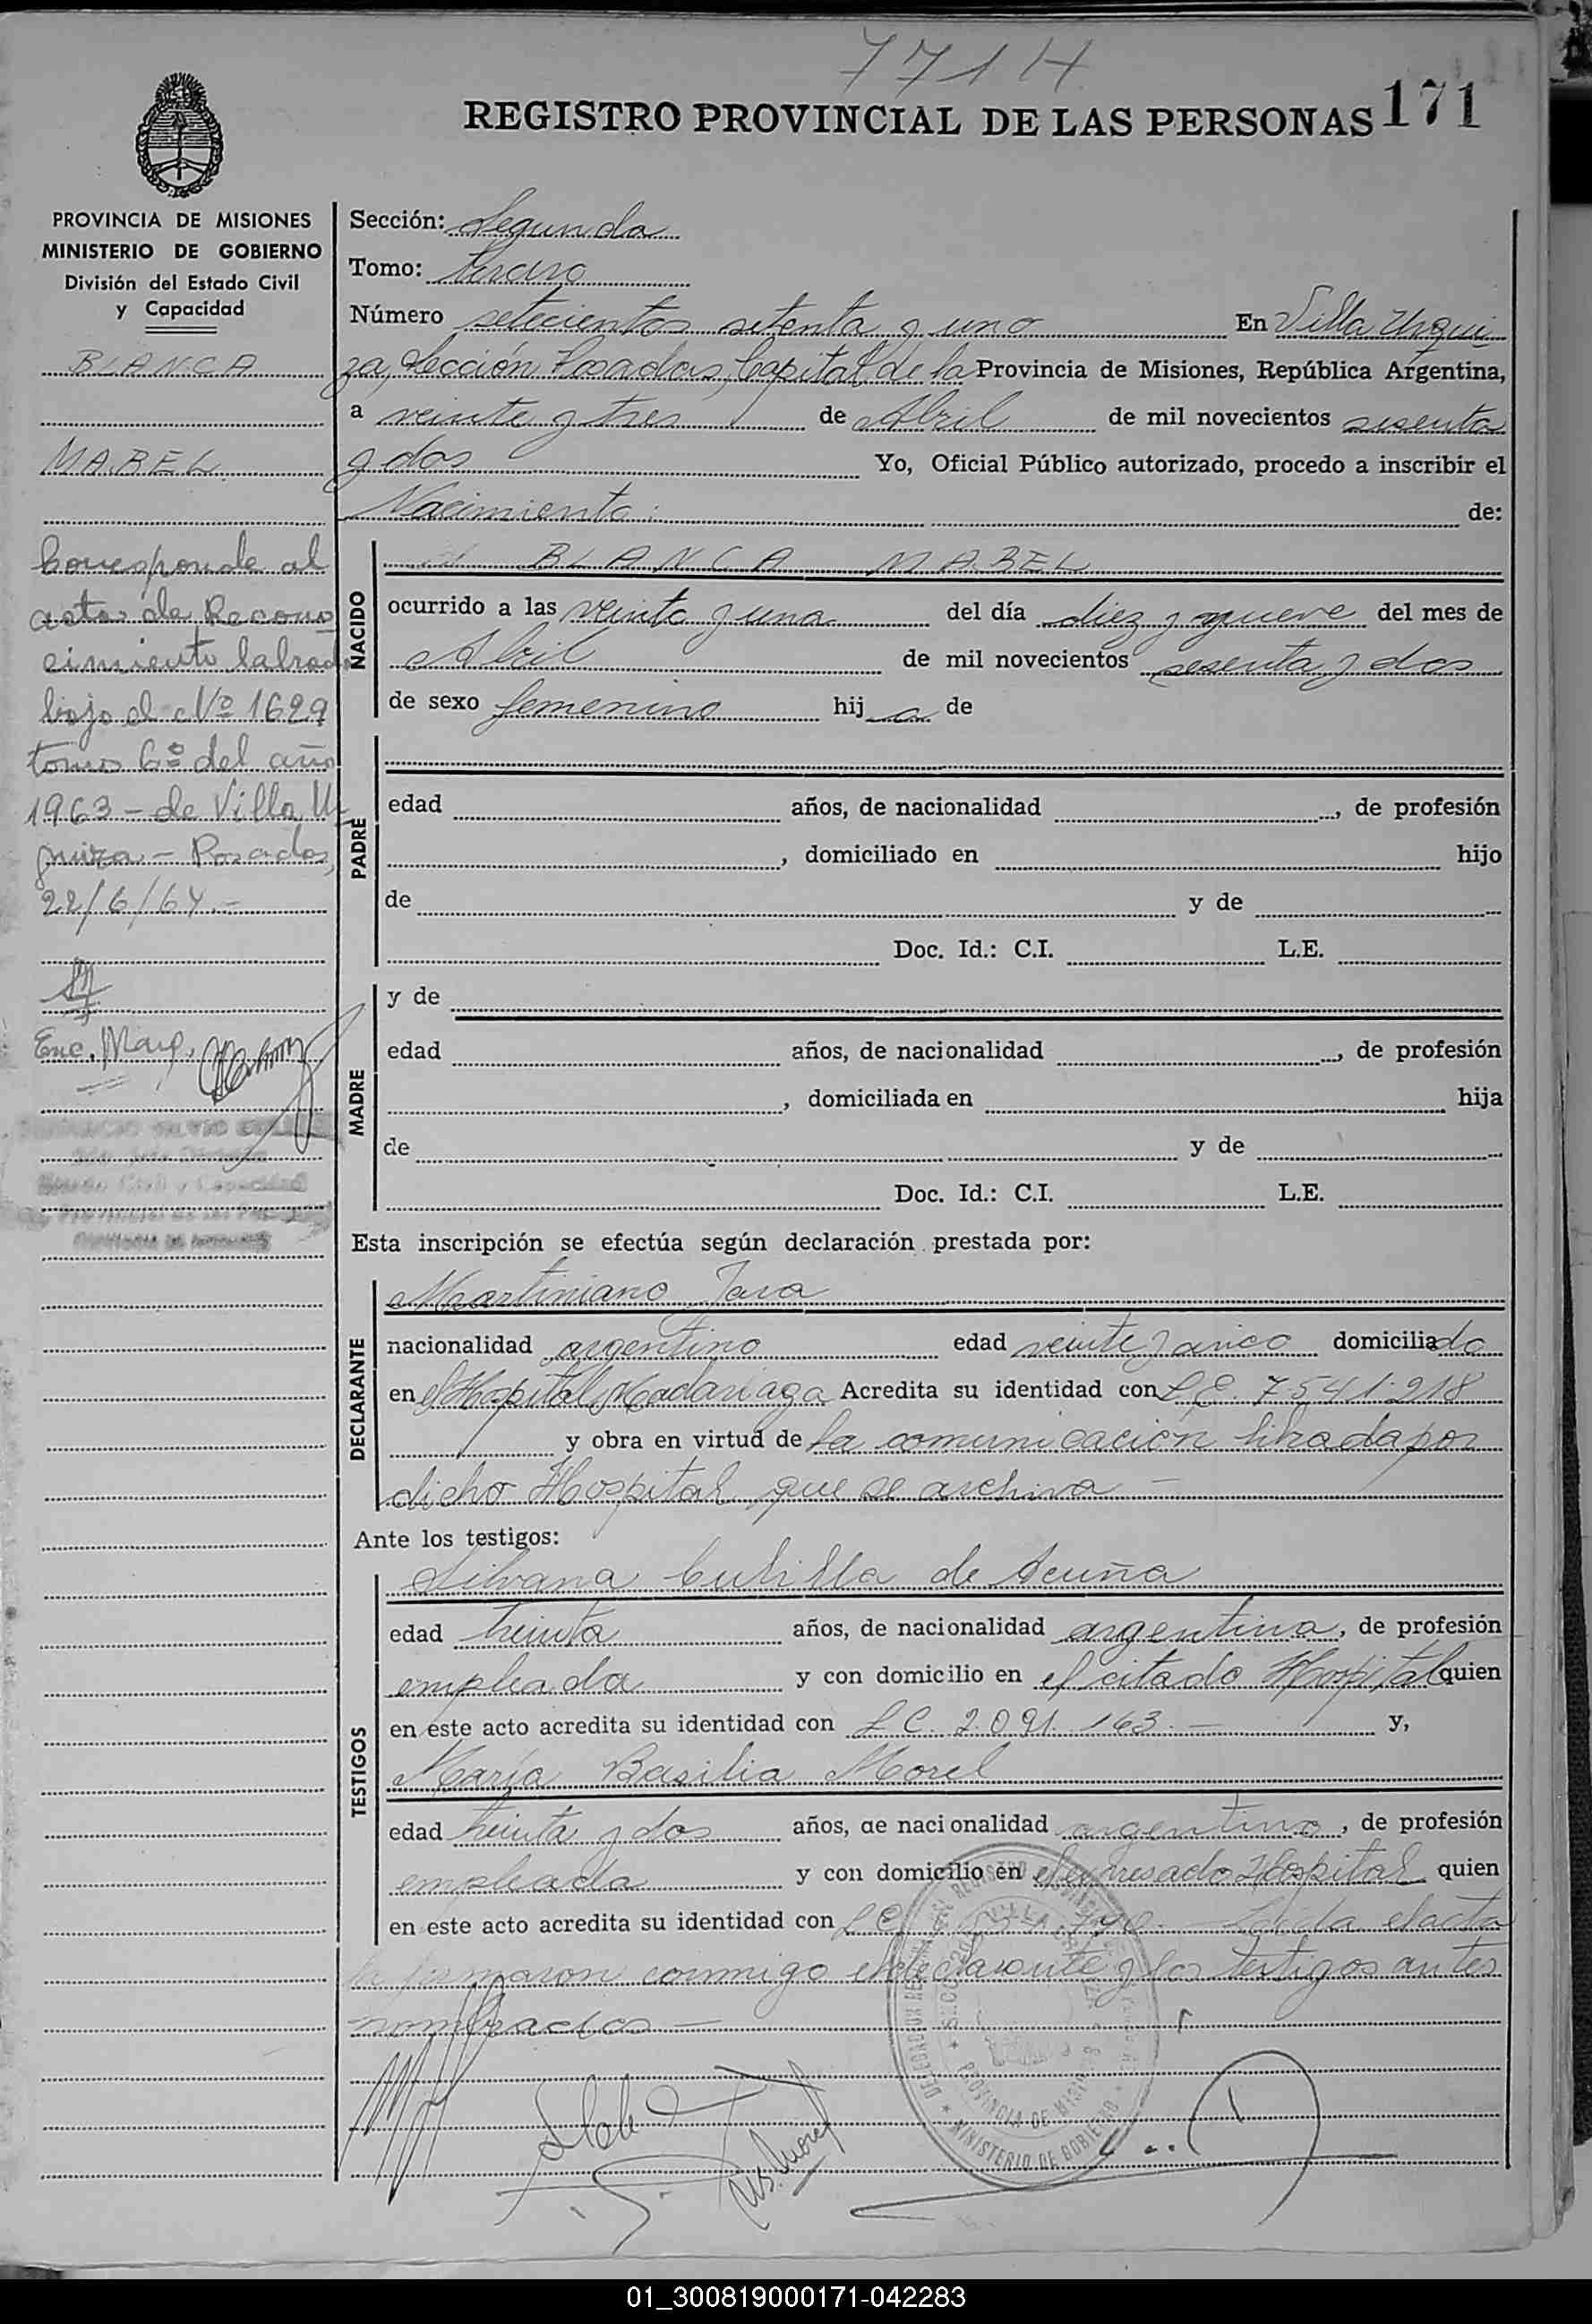 771 H
REGISTRO PROVINCIAL DE LAS PERSONAS 171
PROVINCIA DE MISIONES
MINISTERIO DE GOBIERNO
División del Estado Civil
y Capacidad
BLANCA
MABEL
Corresponde al
acta de Recono
cimiento labrado
bajo el Nº 1629
tomo 6º del año
1963 - de Villa Ur
quiza - Posadas,
22/6/64.-
Enc. Marg.
Sección: Segunda
Tomo: tercero
Número setecientos setenta y uno En Villa Urqui
za, Sección Posadas, Capital de la Provincia de Misiones, República Argentina,
a veinte y tres de Abril de mil novecientos sesenta
y dos Yo, Oficial Público autorizado, procedo a inscribir el
Nacimiento: de:
NACIDO
BLANCA MABEL
ocurrido a las veinte y una del día diez y nueve del mes de
Abril de mil novecientos sesenta y dos
de sexo femenino hija de
PADRE
edad años, de nacionalidad , de profesión
, domiciliado en hijo
de y de
Doc. Id.: C.I. L.E.
MADRE
y de
edad años, de nacionalidad , de profesión
, domiciliada en hija
de y de
Doc. Id.: C.I. L.E.
Esta inscripción se efectúa según declaración prestada por:
DECLARANTE
Martiniano Jara
nacionalidad argentino edad veinte y cinco domiciliado
en el Hospital Madariaga Acredita su identidad con L.E. 7541.218
y obra en virtud de la comunicación librada por
dicho Hospital que se archiva -
Ante los testigos:
TESTIGOS
Silvana Cubilla de Acuña
edad treinta años, de nacionalidad argentina, de profesión
empleada y con domicilio en el citado Hospital quien
en este acto acredita su identidad con L.C. 2.091.163.- y,
María Basilia Morel
edad treinta y dos años, de nacionalidad argentina, de profesión
empleada y con domicilio en el expresado Hospital quien
en este acto acredita su identidad con L.C. Leída el acta
la firmaron conmigo el declarante y los testigos antes
nombrados -
PROVINCIA DE MISIONES
MINISTERIO DE GOBIERNO
01_300819000171-042283